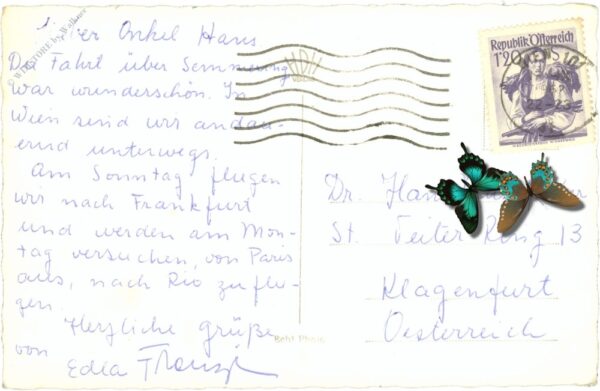 Onkel Hans
Die Fahrt über Semmering
war wunderschön. In
Wien sind wir andau-
ernd unterwegs.
Am Sonntag fliegen
wir nach Frankfurt
und werden am Mon-
tag versuchen, von Paris
aus, nach Rio zu flie-
gen.
Herzliche Grüße
von Edla
Republik Österreich
1.20
Dr. Han
St. Veiter Ring 13
Klagenfurt
Oesterreich